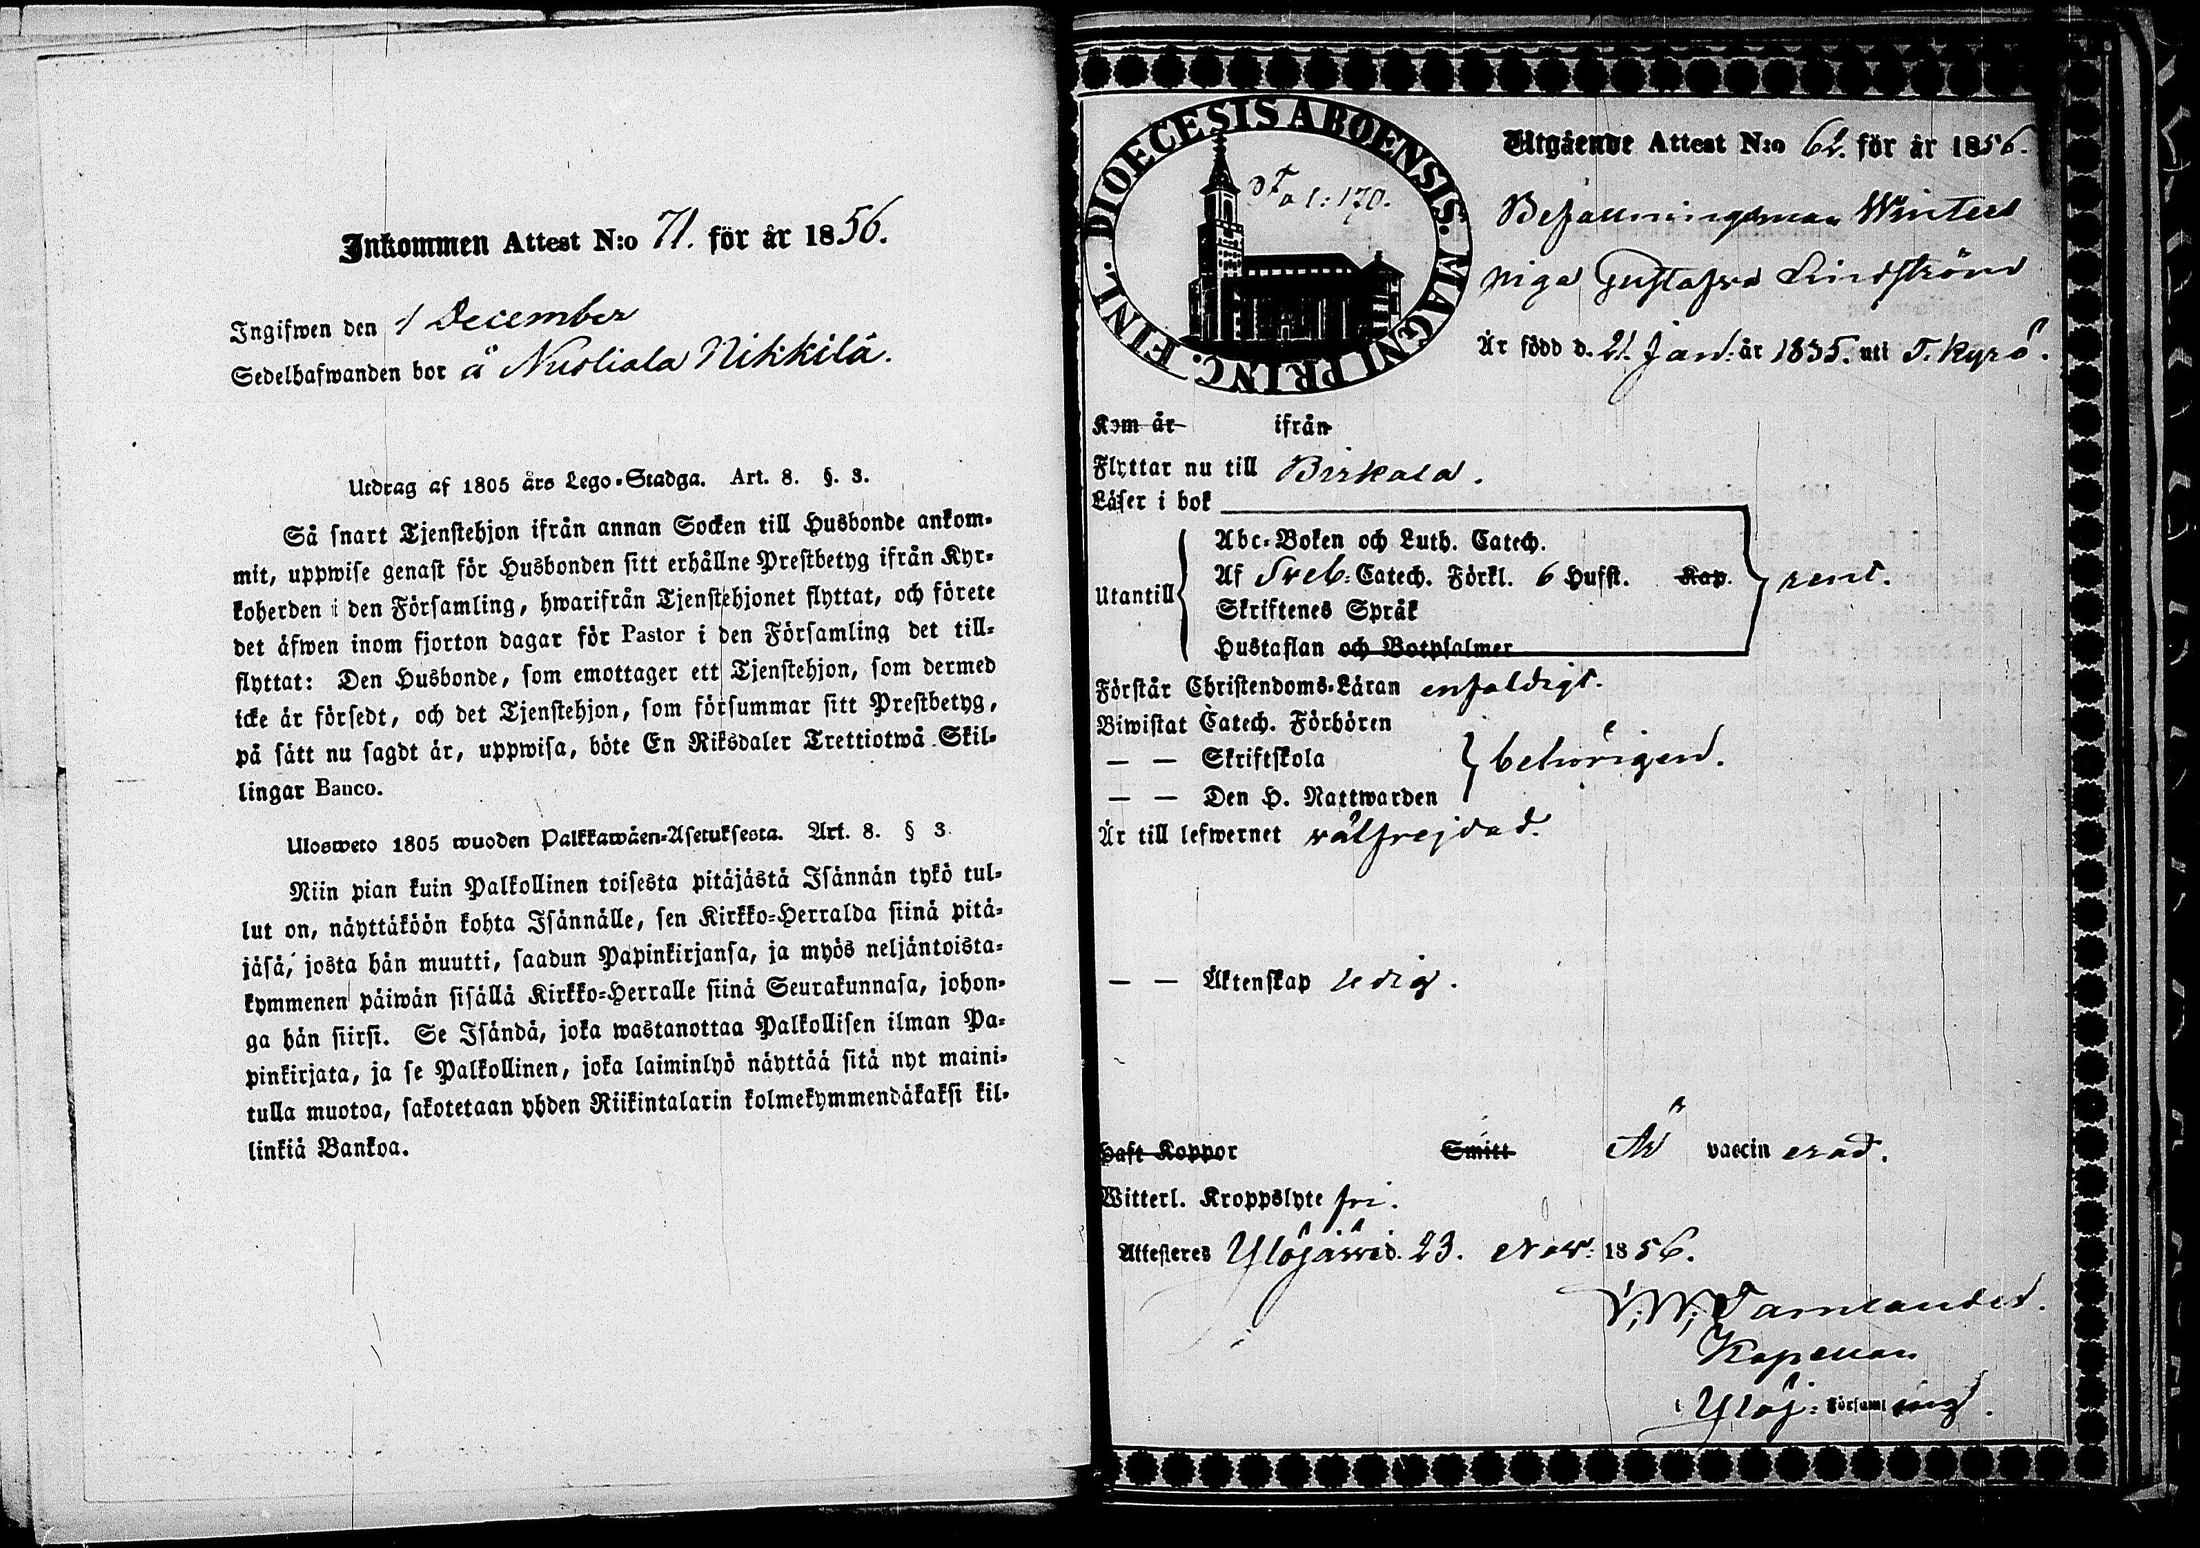 Inkommen Attest N:o 71. för år 1856.
Ingifwen den 1 December
Sedelhafwanden bor å Nuoliala Nikkilä.
Utdrag af 1805 års Lego-Stadga. Art. 8. §. 3.
Så snart Tjenstehjon ifrån annan Socken till Husbonde ankom-
mit, uppwise genast för Husbonden sitt erhållne Prestbetyg ifrån Kyr-
koherden i den Församling, hwarifrån Tjenstehjonet flyttat, och förete
det äfwen inom fjorton dagar för Pastor i den Församling det till-
flyttat: Den Husbonde, som emottager ett Tjenstehjon, som dermed
icke är försedt, och det Tjenstehjon, som försummar sitt Prestbetyg,
på sätt nu sagdt är, uppwisa, böte En Riksdaler Trettiotwå Skil-
lingar Banco.
Ulosweto 1805 wuoden Palkkawäen-Asetuksesta. Art. 8. § 3.
Niin pian kuin Palkollinen toisesta pitäjästä Isännän tykö tul-
lut on, näyttäköön kohta Isännälle, sen Kirkko-Herralda siinä pitä-
jäsä, josta hän muutti, saadun Papinkirjansa, ja myös neljäntoista-
kymmenen päiwän sisällä Kirkko-Herralle siinä Seurakunnasa, johon-
ga hän siirsi. Se Isändä, joka wastanottaa Palkollisen ilman Pa-
pinkirjata, ja se Palkollinen, joka laiminlyö näyttää sitä nyt maini-
tulla muotoa, sakotetaan yhden Riikintalarin kolmekymmendäkaksi kil-
linkiä Bankoa.
DIOECESIS ABOENSIS. MAGNI PRINC. FINL.
Fol: 170.
Utgående Attest N:o 62. för år 1856.
Befallningsman Winters
piga Gustafva Lindström
Är född d. 21. Jan. år 1835. uti T. Kyrö.
Kom år ifrån
Flyttar nu till Birkala.
Läser i bok
Utantill
Abc-Boken och Luth. Catech.
Af Sveb: Catech. Förkl. 6 Hufst. Kap.
Skriftenes Språk
Hustaflan och Botpsalmer
rent.
Förstår Christendoms-Läran enfaldigt.
Biwistat Catech. Förhören
— — Skriftskola
— — Den H. Nattwarden
behörigen.
Är till lefwernet wälfrejdad.
— — Äktenskap ledig.
Haft Koppor Smitt Är vaccinerad.
Witterl. Kroppslyte fri.
Attesteras Ylöjärvi d. 23. Nov: 1856.
Kapellan
i Ylöj: Församling.